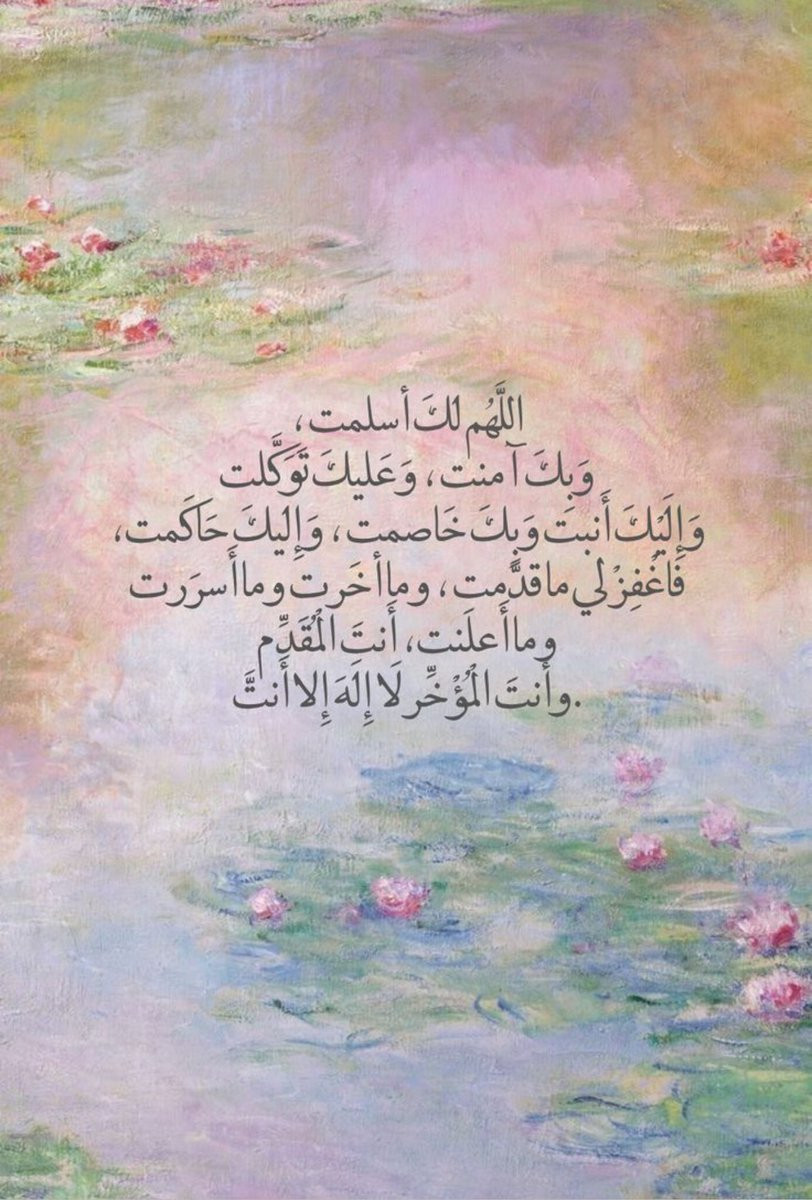 اللَّهُم لكَ أسلمت،
وَبِكَ آمنت، وَعَليكَ تَوَكَّلت
وَإِلَيْكَ أَنبتَ وَبِكَ خَاصمت، وَإِليكَ حَاكَمت،
فَاغْفِرْ لي ما قدَّمت، وما أخَرت وما أَسرَرت
وما أَعلَنت، أَنتَ الْمُقَدِّم
وأَنتَ الْمُؤْخِّر لَا إِلَهَ إِلا أَنتَّ.